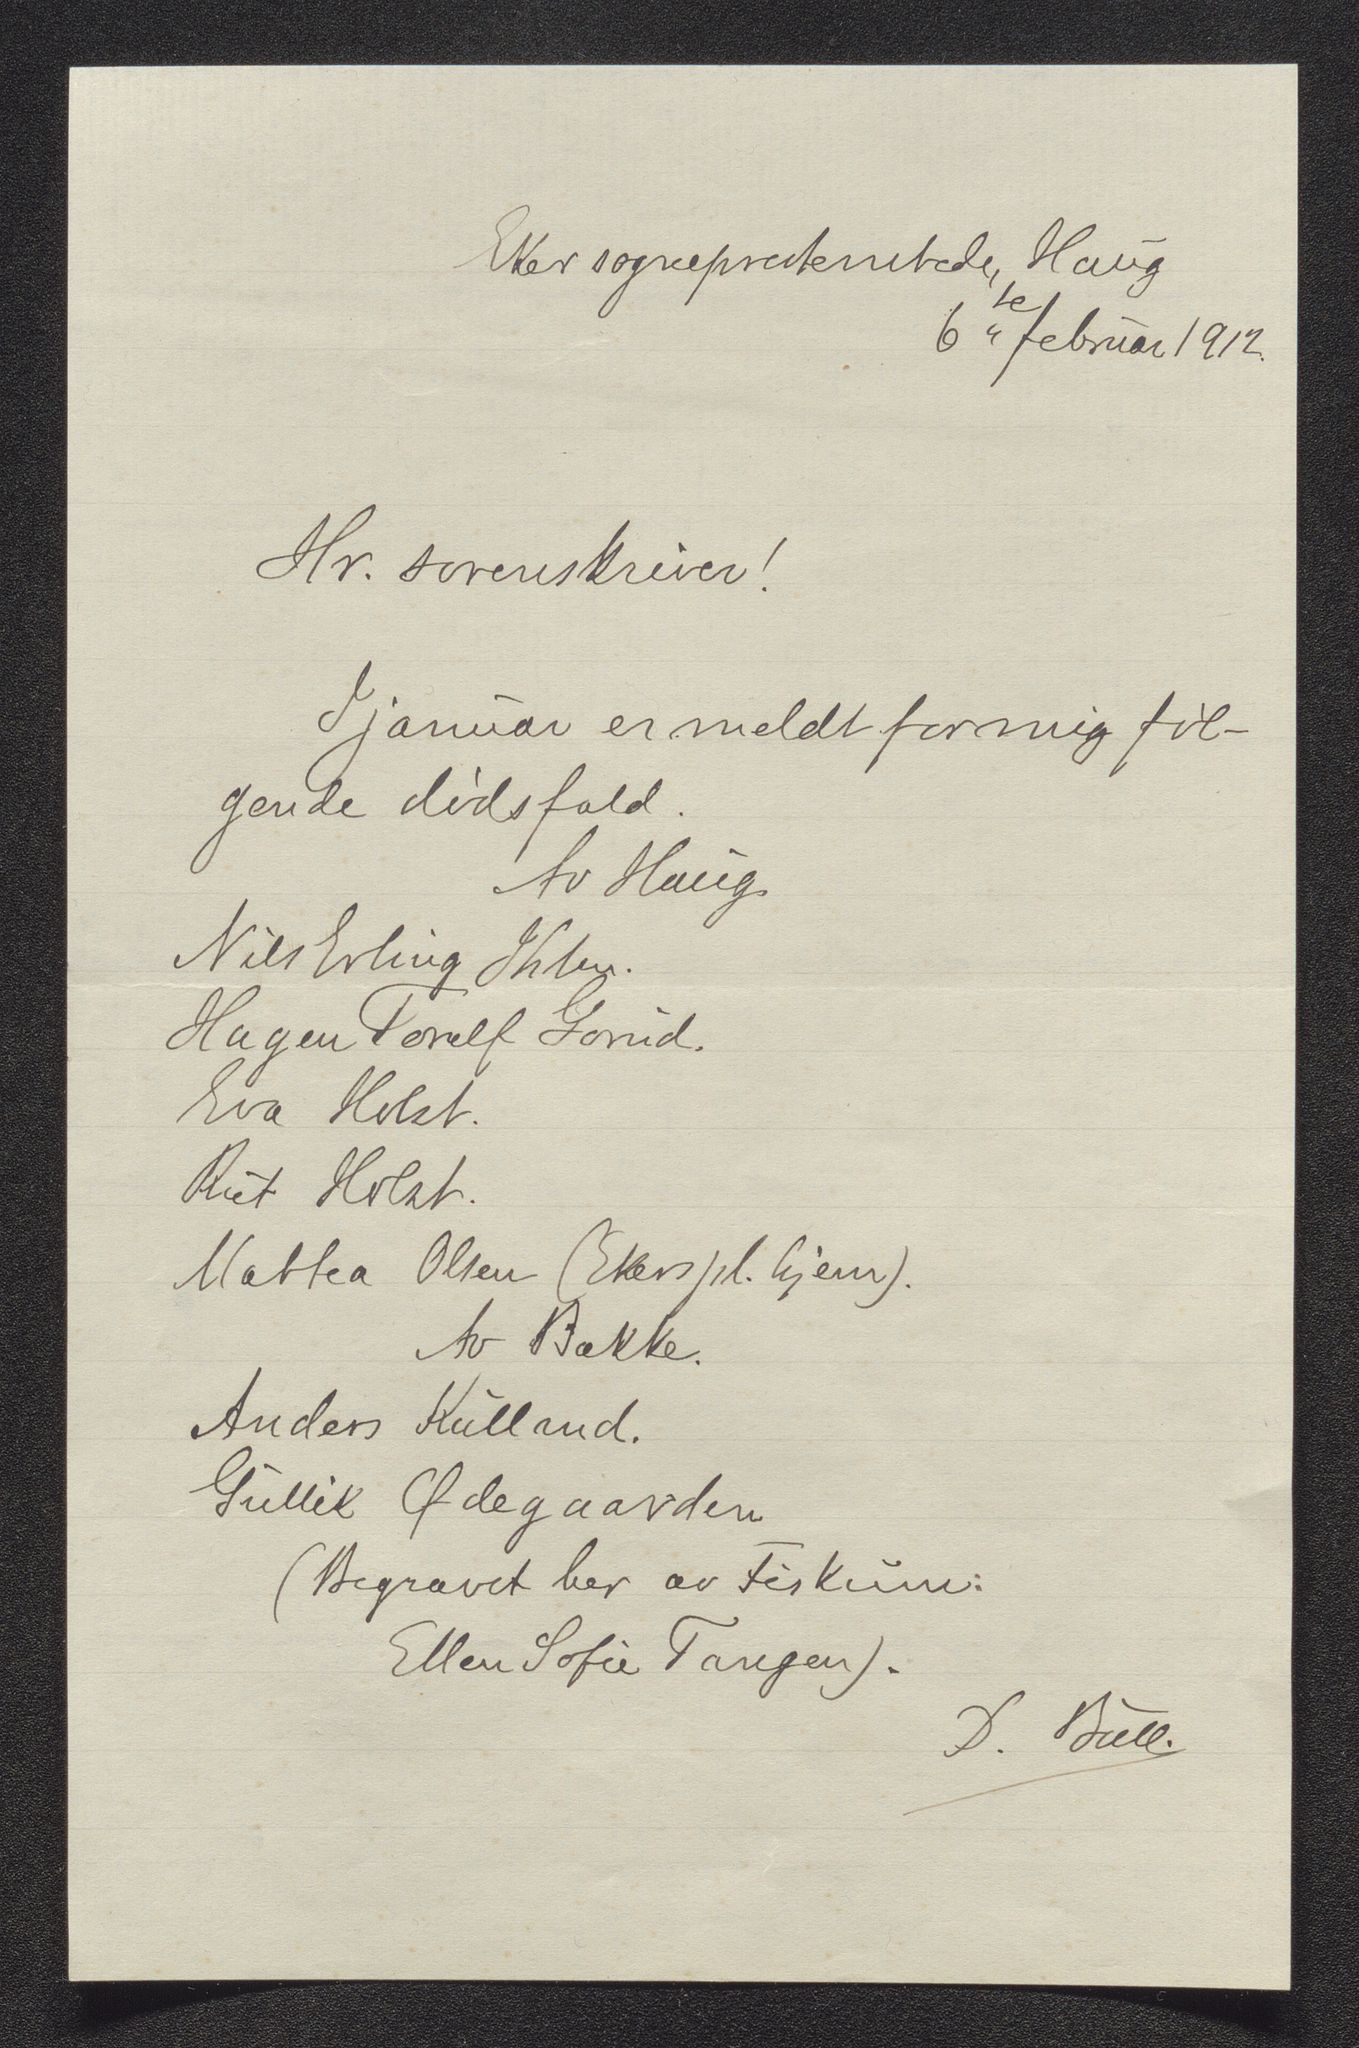 Eker sogneprestembede, Haug
6te februar 1912.
Hr. sorenskriver!
I januar er meldt for mig føl-
gende dødsfald.
Av Haug.
Nils Erling Ihlen.
Hagen Toralf Gorud.
Eva Holst.
Rut Holst.
Mattea Olsen (Ekers pl. hjem).
Av Bakke.
Anders Kulland.
Gullik Ødegaarden
(Begravet her av Fiskum:
Ellen Sofie Tangen).
D. Bull.